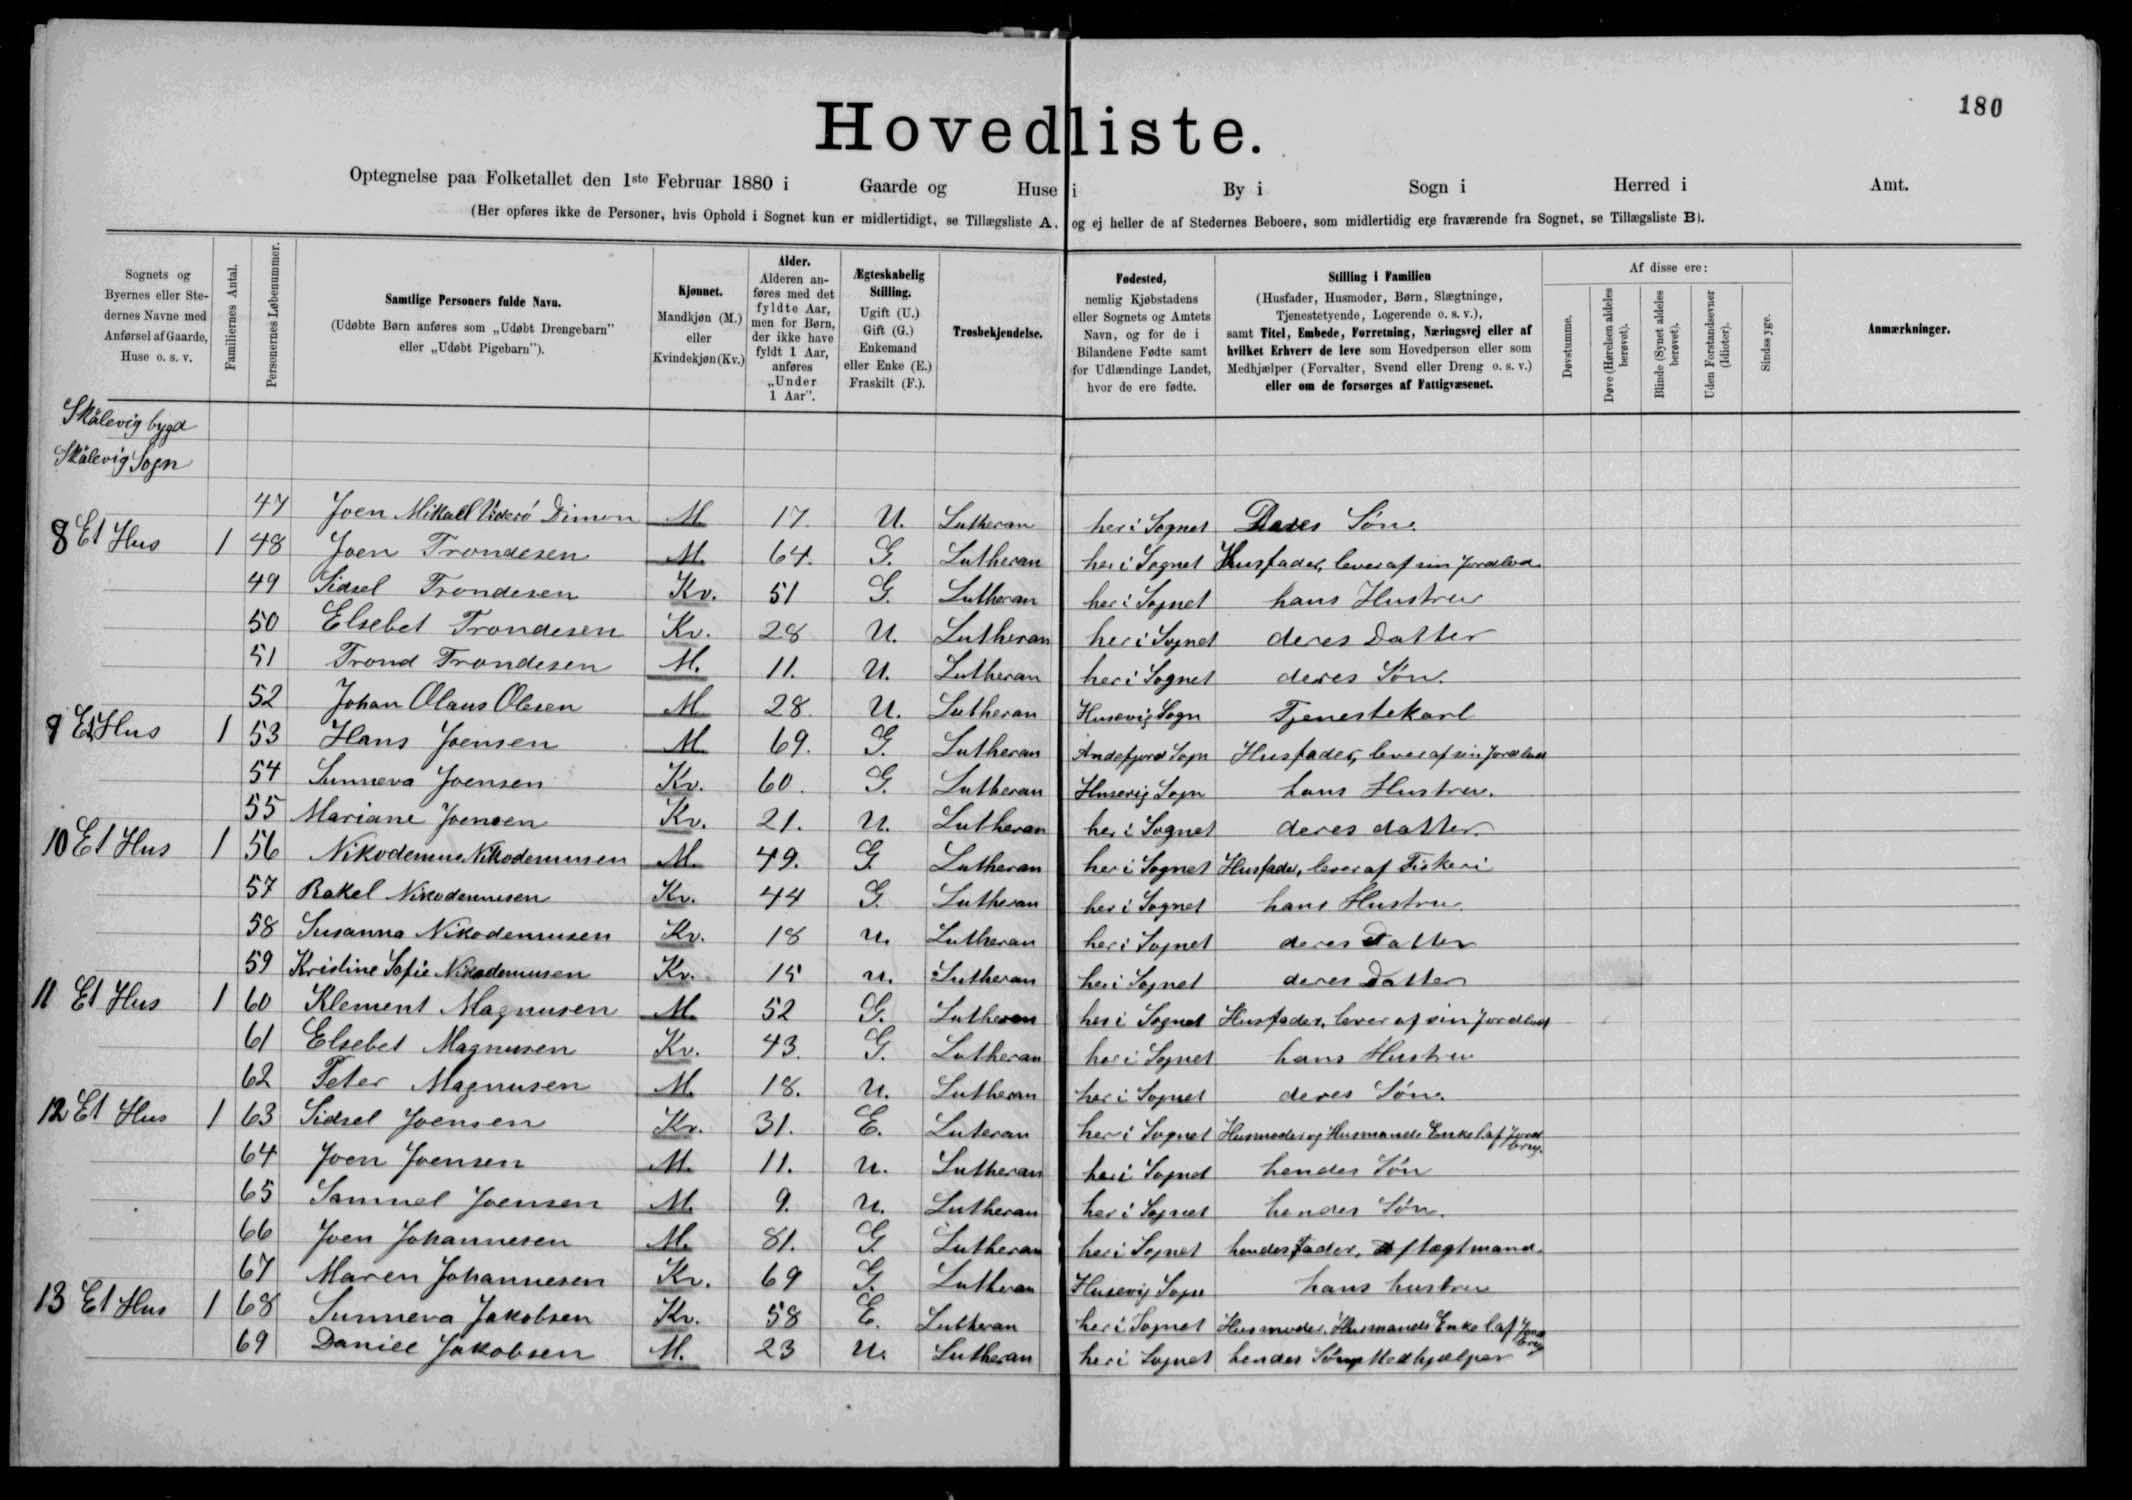 180
Hovedliste.
Optegnelse paa Folketallet den 1ste Februar 1880 i Gaarde og Huse i By i Sogn i Herred i Amt.
(Her opføres ikke de Personer, hvis Ophold i Sognet kun er midlertidigt, se Tillægsliste A, og ej heller de af Stedernes Beboere, som midlertidig ere fraværende fra Sognet, se Tillægsliste B).
Sognets og Byernes eller Stedernes Navne med Anførsel af Gaarde, Huse o. s. v.
Familiernes Antal.
Personernes Løbenummer.
Samtlige Personers fulde Navn. (Udøbte Børn anføres som „Udøbt Drengebarn" eller „Udøbt Pigebarn").
Kjønnet. Mandkjøn (M.) eller Kvindekjøn (Kv.)
Alder. Alderen anføres med det fyldte Aar, men for Børn, der ikke have fyldt 1 Aar, anføres „Under 1 Aar".
Ægteskabelig Stilling. Ugift (U.) Gift (G.) Enkemand eller Enke (E.) Fraskilt (F.).
Trosbekjendelse.
Fødested, nemlig Kjøbstadens eller Sognets og Amtets Navn, og for de i Bilandene Fødte samt for Udlændinge Landet, hvor de ere fødte.
Stilling i Familien (Husfader, Husmoder, Børn, Slægtninge, Tjenestetyende, Logerende o. s. v.), samt Titel, Embede, Forretning, Næringsvej eller af hvilket Erhverv de leve som Hovedperson eller som Medhjælper (Forvalter, Svend eller Dreng o. s. v.) eller om de forsørges af Fattigvæsenet.
Af disse ere:
Døvstumme.
Døve (Hørelsen aldeles berøvet).
Blinde (Synet aldeles berøvet).
Uden Forstandsevner (Idioter).
Sindssyge.
Anmærkninger.
Skålevig bygd
Skålevig Sogn
47 Joen Mikael Viderö Dimon M 17. U. Lutheran her i Sognet Deres Søn.
8 Et Hus 1 48 Joen Trondesen M. 64. G. Lutheran her i Sognet Husfader, lever af sin Jordlod.
49 Sidsel Trondesen Kv. 51 G. Lutheran her i Sognet hans Hustru
50 Elsebet Trondesen Kv. 28 U. Lutheran her i Sognet deres Datter
51 Trond Trondesen M. 11. U. Lutheran her i Sognet deres Søn.
52 Johan Olaus Olesen M 28. U. Lutheran Husevig Sogn Tjenestekarl
9 Et Hus 1 53 Hans Joensen M 69. G. Lutheran Andefjord Sogn Husfader, lever af sin Jordlod
54 Sunneva Joensen Kv. 60. G. Lutheran Husevig Sogn hans Hustru.
55 Mariane Joensen Kv. 21. U. Lutheran her i Sognet deres datter.
10 Et Hus 1 56 Nikodemus Nikodemusen M. 49. G. Lutheran her i Sognet Husfader, lever af Fiskeri
57 Rakel Nikodemusen Kv. 44 G. Lutheran her i Sognet hans Hustru.
58 Susanna Nikodemusen Kv. 18 U. Lutheran her i Sognet deres Datter
59 Kristine Sofie Nikodemusen Kv. 15 U. Lutheran her i Sognet deres Datter
11 Et Hus 1 60 Klement Magnusen M. 52 G. Lutheran her i Sognet Husfader, lever af sin Jordlod
61 Elsebet Magnusen Kv. 43. G. Lutheran her i Sognet hans Hustru
62 Peter Magnusen M. 18. U. Lutheran her i Sognet deres Søn.
12 Et Hus 1 63 Sidsel Joensen Kv. 31. E. Luteran her i Sognet Husmoder og Husmands Enke l. af Jordbrug.
64 Joen Joensen M. 11. U. Lutheran her i Sognet hendes Søn
65 Samuel Joensen M. 9. U. Lutheran her i Sognet hendes Søn.
66 Joen Johannesen M. 81. G. Lutheran her i Sognet hendes Fader. Aftægtmand.
67 Maren Johannesen Kv. 69 G. Lutheran Husevig Sogn hans hustru
13 Et Hus 1 68 Sunneva Jakobsen Kv. 58 E. Lutheran her i Sognet Husmoder. Husmands Enke l. af Jordbrug
69 Daniel Jakobsen M. 23 U. Lutheran her i Sognet hendes Søn Medhjælper